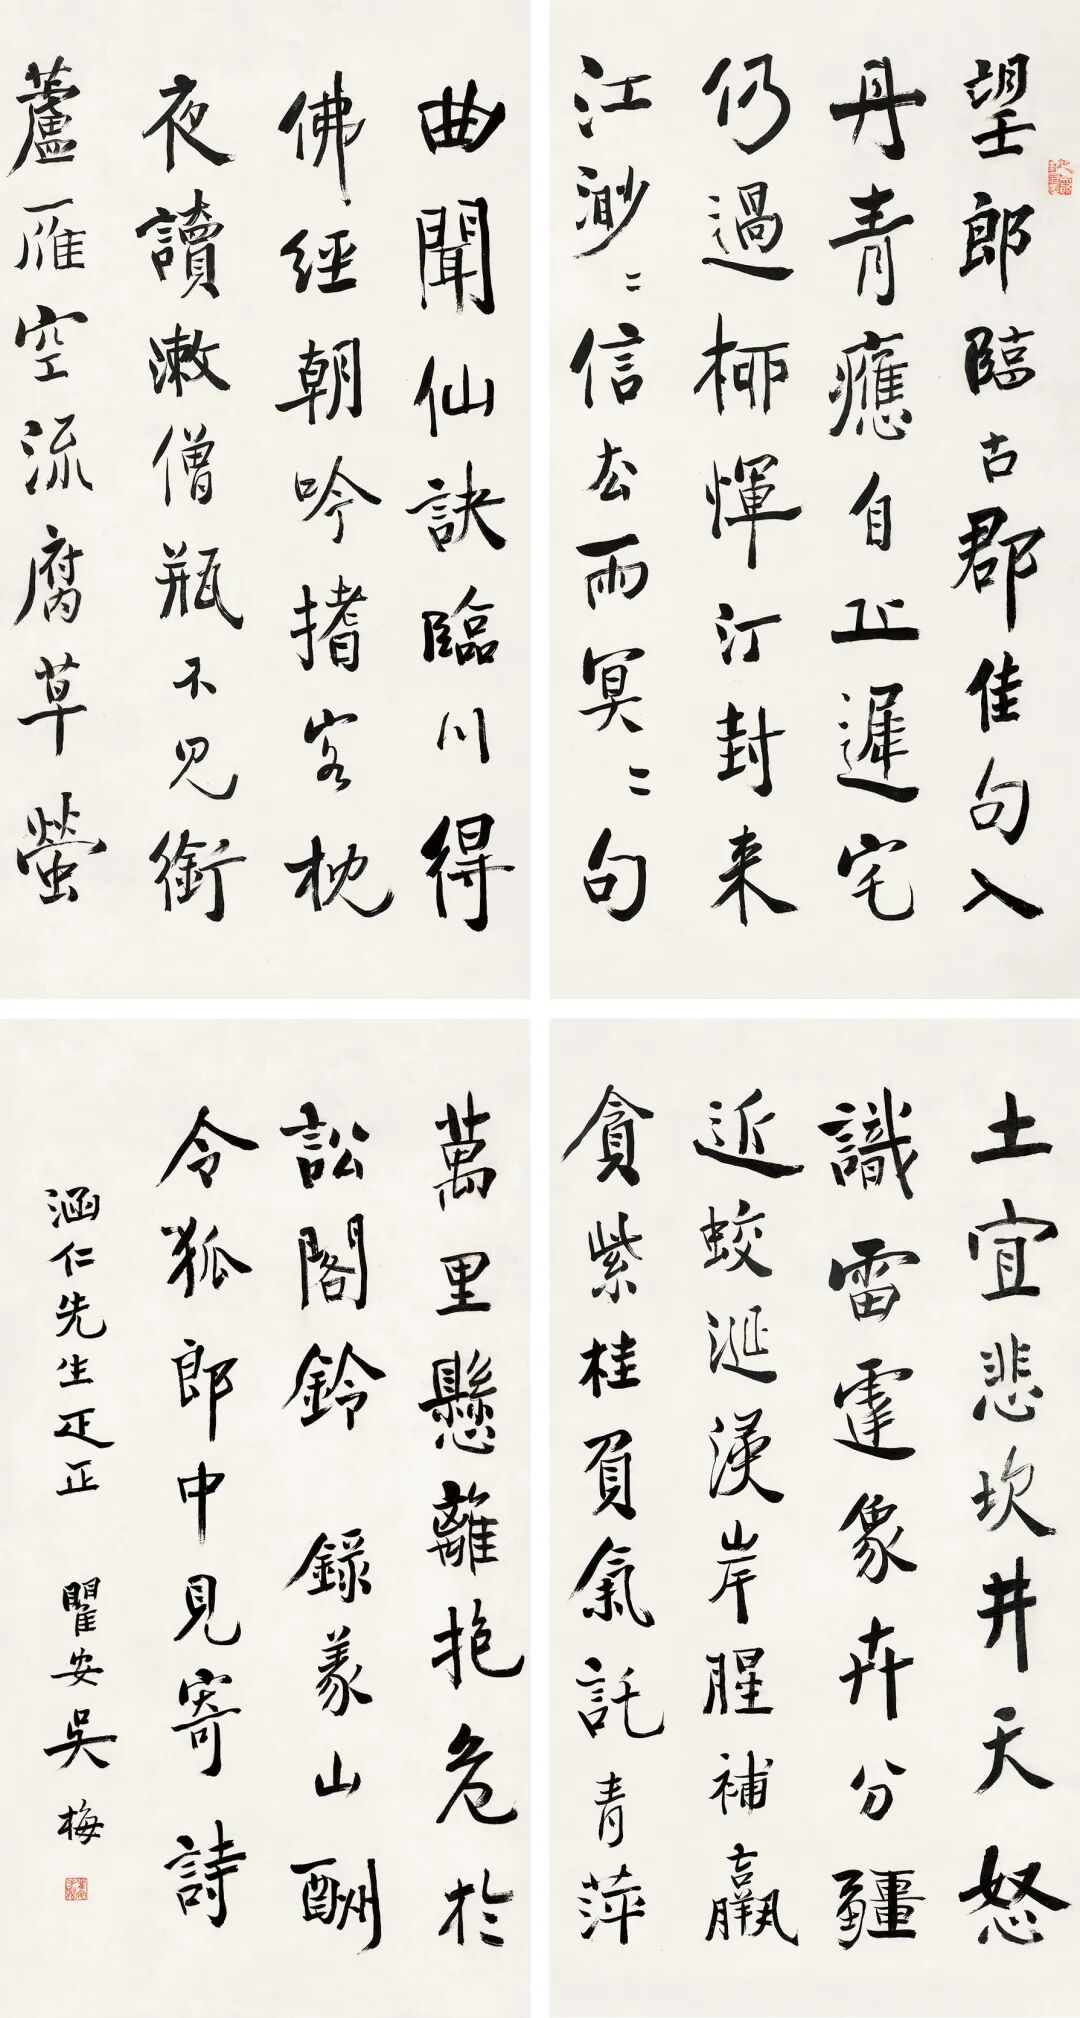 望郎臨古郡佳句入
丹青應自丘遲宅
仍過柳惲汀封來
江渺〻信去雨冥〻句
曲聞仙訣臨川得
佛經朝吟搘客枕
夜讀漱僧瓶不見銜
蘆雁空流腐草螢
土宜悲坎井天怒
識雷霆象卉分疆
近蛟涎漢岸腥補羸
貪紫桂負氣託青萍
萬里懸離抱危於
訟閣鈴 錄義山酬
令狐郎中見寄詩
涵仁先生疋正 瞿安吳梅